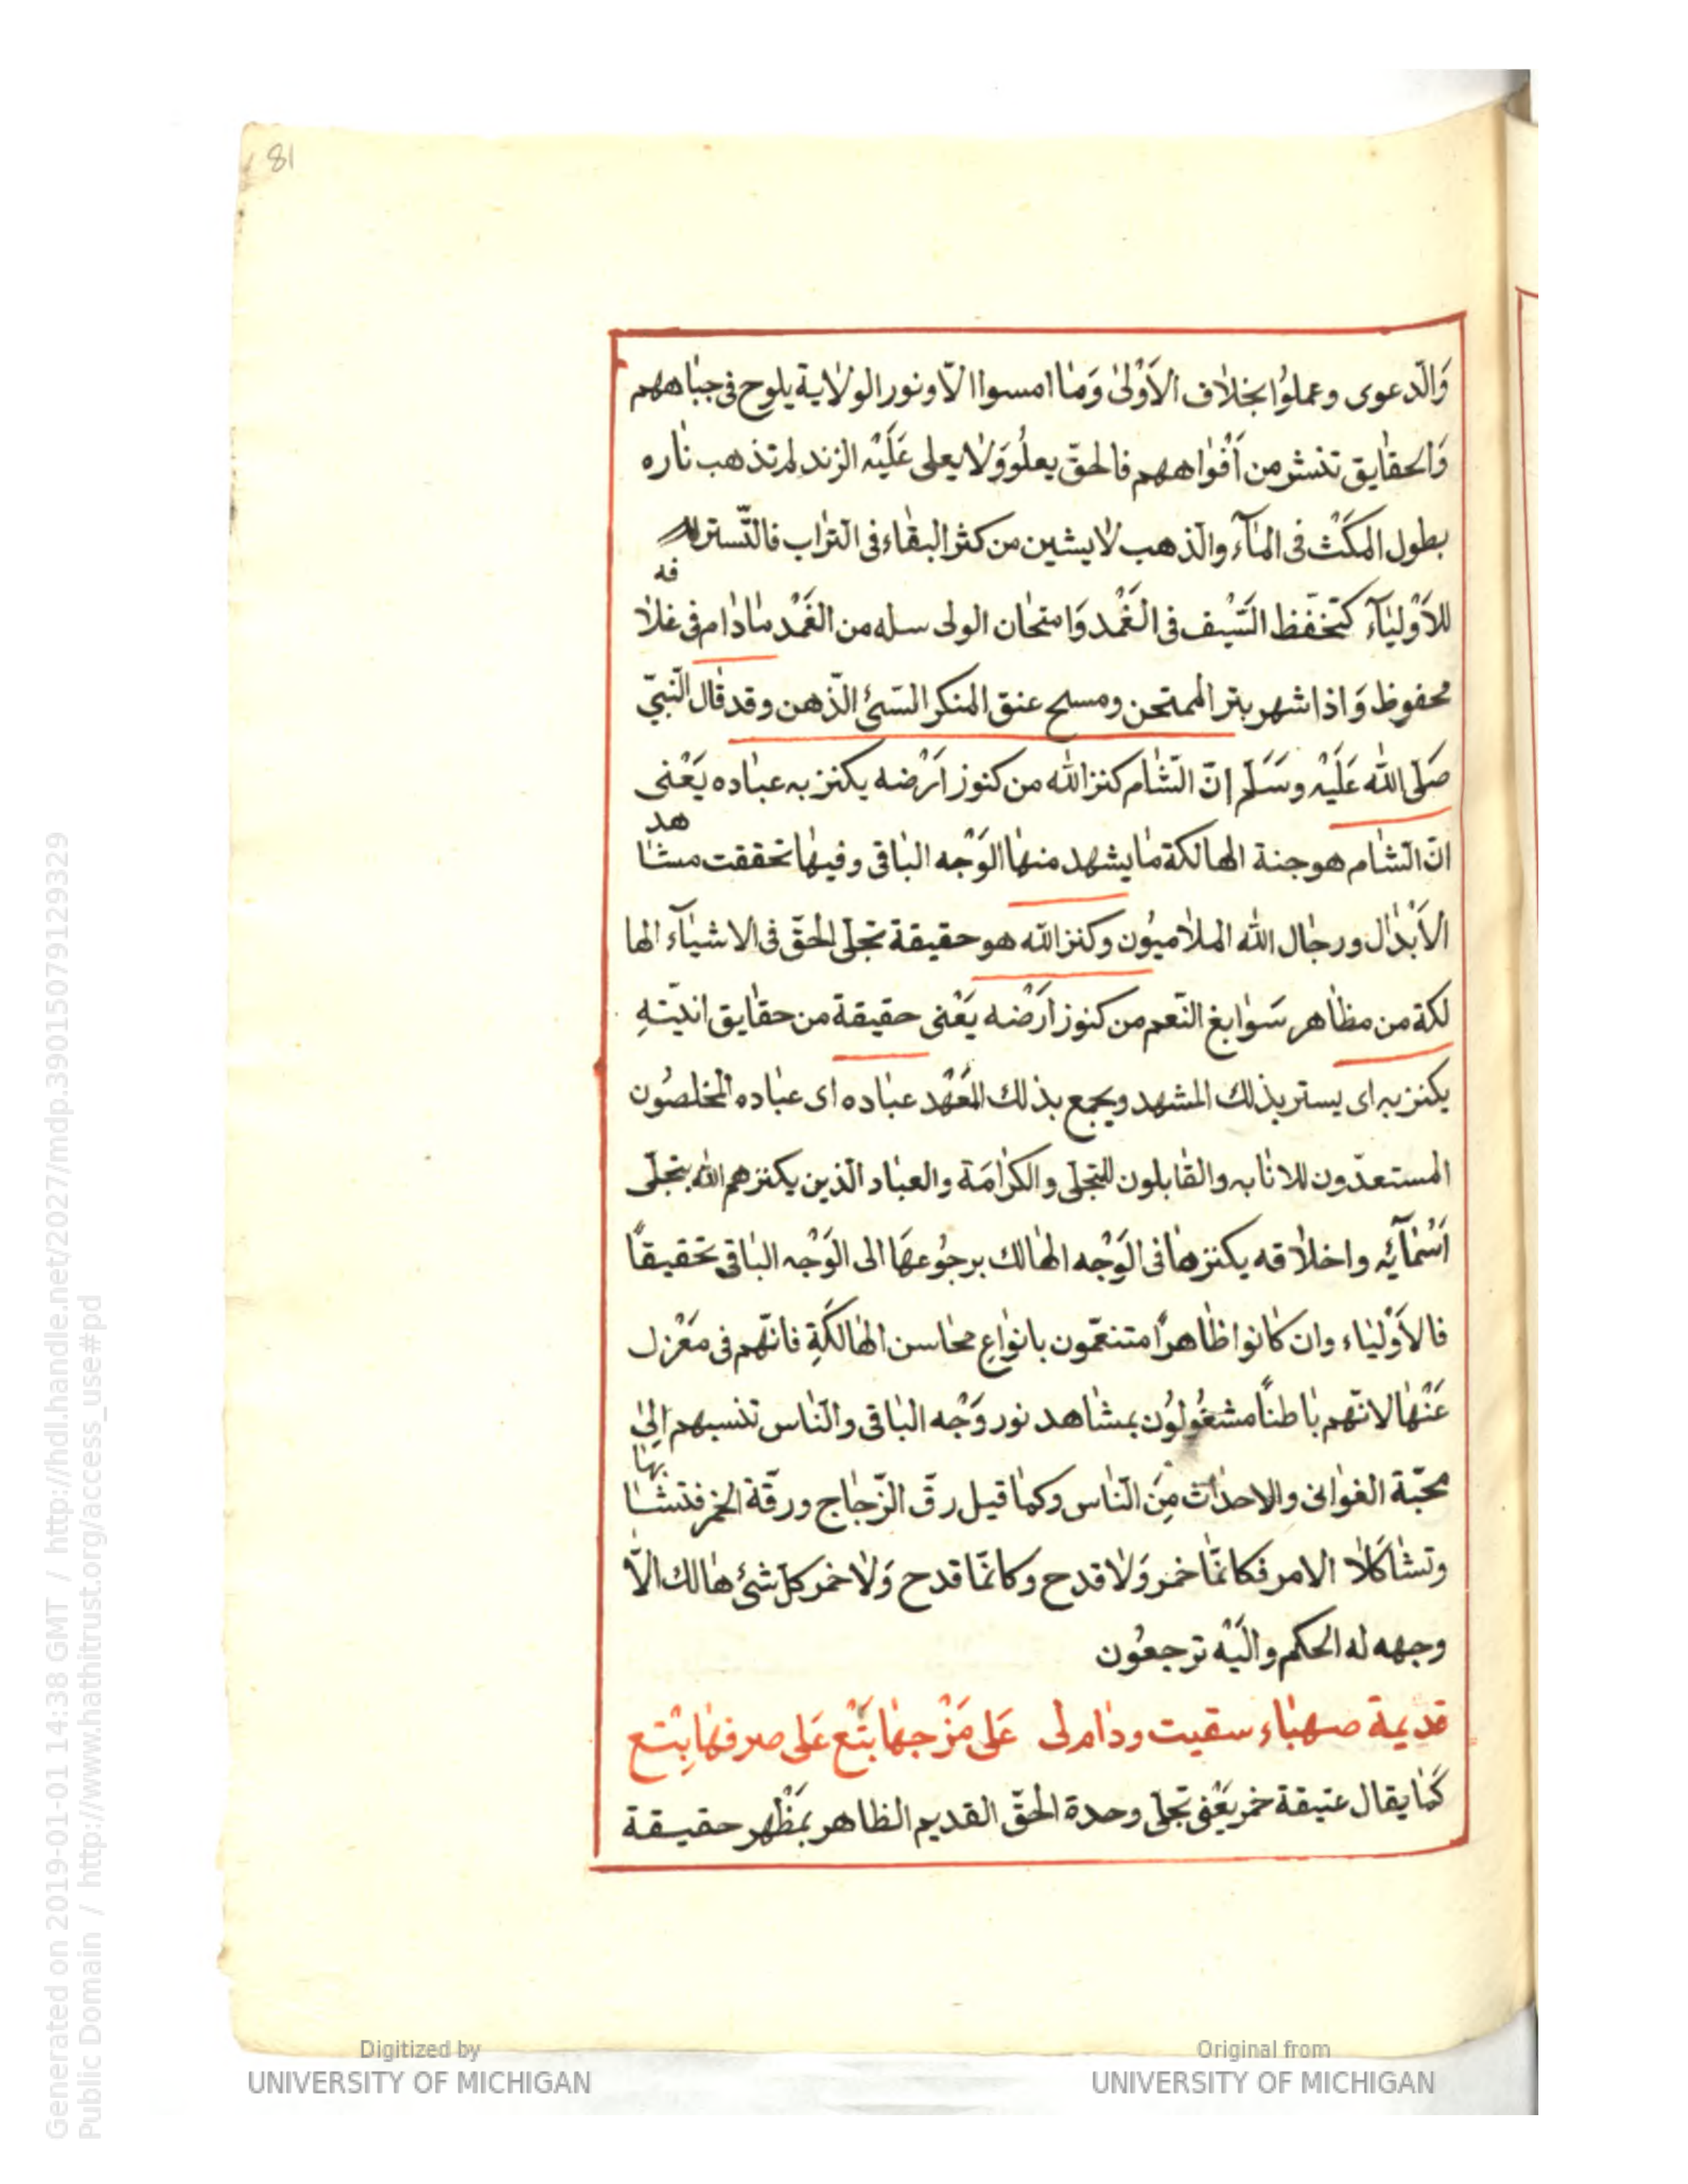 81
وَالّدعوى وعملوُا بخلاف الاَوْلىٰ وَمٰا امسوا الاّ ونور الولاية يلوح فى جبٰاههم
وَالحقٰايق تنشر من اَفْوٰاههم فالحقّ يعلُو وَلا يعلى عَلَيْه الزند لم تذهب نٰاره
بطول المكَثْ فى المٰآء والذهب لا يشين من كثر البقٰاء فى التراب فالتّستر
للاَوْليٰآء كتحّفظ السَّيْف فى الغَمْد وَامتحٰان الولى سله من الغَمْد مٰادٰام فى غلافه
محفوظ وَاذا شهر بتر الممتحن ومسح عنق المنكر السّئ الذّهن وقد قٰال النّبىّ
صَلى اللّه عَلَيْه وسَلَم انّ الشّٰام كنز اللّه من كنوز اَرَضه يكنز به عبٰاده يَعْنى
انّ الشّٰام هو جنة الهالكة مٰا يشهد منهٰا الوَجْه البٰاقى وفيهٰا تحققت مشٰاهد
الاَبْدٰال ورجٰال اللّه الملاميوُن وكنز اللّه هو حقيقة تجلّى الحقّ فى الاشيٰآء الها
لكة من مظاهر سَوٰابغ النّعم من كنوز ارَضْه يَعْنى حقيقة من حقٰايق انيّتهِ
يكنز به اى يستر بذلك المشهد ويجمع بذلك المَعْهد عبٰاده اى عبٰاده المخلصُون
المستعدّون للانٰابه والقٰابلون للتجلى والكرٰامَة والعبٰاد الّذين يكنزهم اللّه بتجلّى
اَسْمٰآئِه واخلاقه يكنزهٰا فى الَوَجْه الهٰالك برجُوعهَا الى الوَجْه البٰاقى تحقيقاً
فالاَوْليٰاء وان كٰانوا ظٰاهراً متنعّمون بانوٰاعِ محٰاسن الهٰالكَةِ فانّهم فى مَعْزل
عَنْهٰا لانّهم بٰاطناً مشغُولوُن بمشٰاهد نور وَجْه البٰاقى والنّاس تنسبهم اِلىٰ
محبّة الغوٰانى والاحدٰاث مِنَ النّٰاس وكمٰا قيل رقّ الزّجٰاج ورقّة الخمر فتشٰابهٰا
وتشٰاكلا الامر فكانمّٰا خمر وَلا قدح وكانمّٰا قدح وَلا خمر كلّ شئ هٰالك الاّ
وجهه له الحكم والَيْه ترجعُون
قديمة صهبٰاء سقيت ودٰام لى عَلى مَزْجهٰا بَتْع عَلى صرفهٰا بِتْع
كَمٰا يقال عتيقة خمر يَعْنى تجلّى وحدة الحقّ القديم الظاهر بمَظْهر حقيقة
Digitized by
UNIVERSITY OF MICHIGAN
Original from
UNIVERSITY OF MICHIGAN
Generated on 2019-01-01 14:38 GMT / http://hdl.handle.net/2027/mdp.39015079129329
Public Domain / http://www.hathitrust.org/access_use#pd